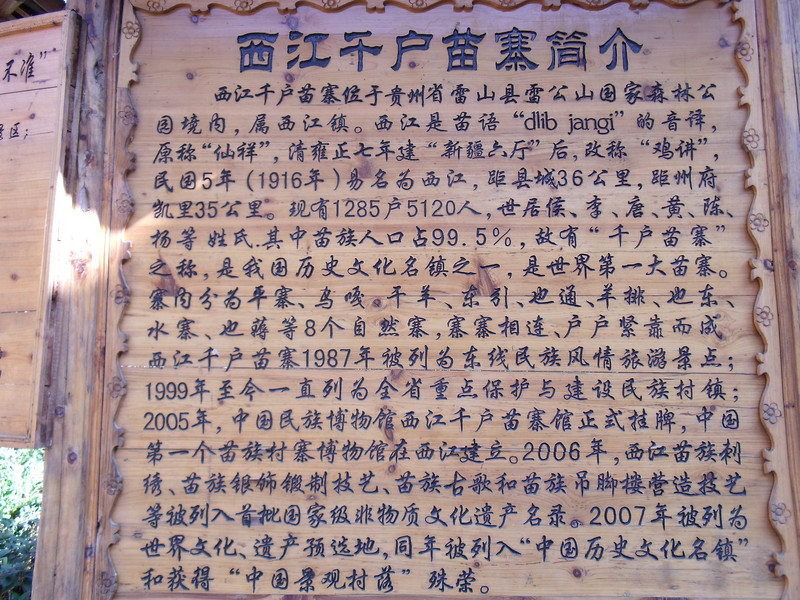 不准”
景区；
西江千户苗寨简介
西江千户苗寨位于贵州省雷山县雷公山国家森林公
园境内，属西江镇。西江是苗语“dlib jangi”的音译，
原称“仙祥”，清雍正七年建“新疆六厅”后，改称“鸡讲”，
民国5年（1916年）易名为西江，距县城36公里，距州府
凯里35公里。现有1285户5120人，世居侯、李、唐、黄、陈、
杨等姓氏.其中苗族人口占99.5%，故有“千户苗寨”
之称，是我国历史文化名镇之一，是世界第一大苗寨。
寨内分为平寨、乌嘎、干羊、东引、也通、羊排、也东、
水寨、也薅等8个自然寨，寨寨相连、户户紧靠而成
西江千户苗寨1987年被列为东线民族风情旅游景点；
1999年至今一直列为全省重点保护与建设民族村镇；
2005年，中国民族博物馆西江千户苗寨馆正式挂牌，中国
第一个苗族村寨博物馆在西江建立。2006年，西江苗族刺
绣、苗族银饰锻制技艺、苗族古歌和苗族吊脚楼营造技艺
等被列入首批国家级非物质文化遗产名录。2007年被列为
世界文化、遗产预选地，同年被列入“中国历史文化名镇”
和获得“中国景观村落”殊荣。